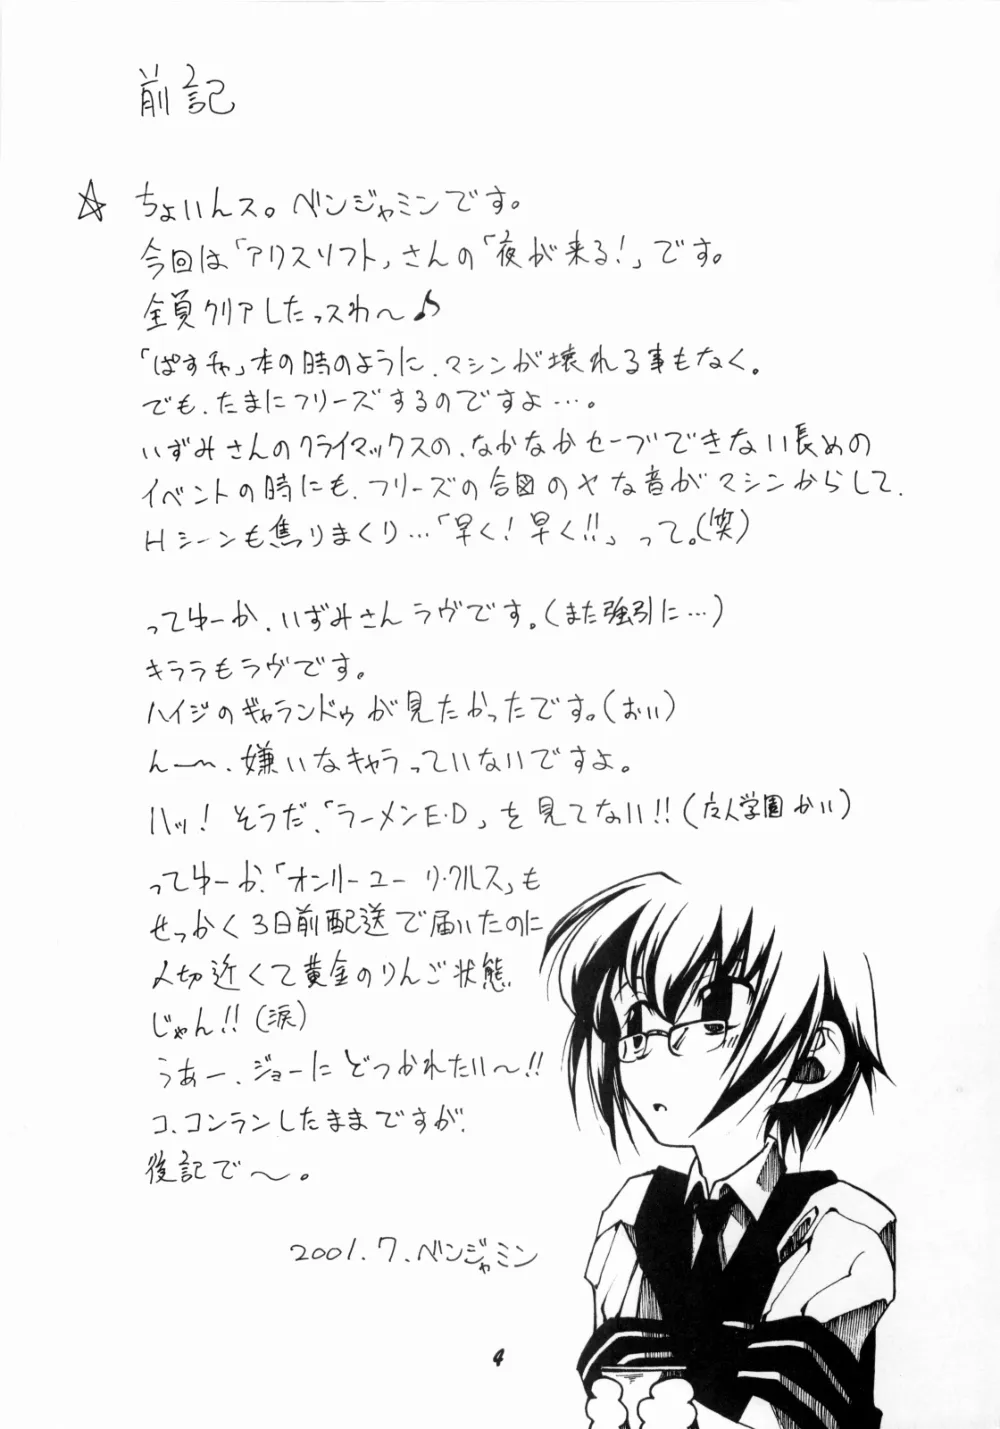 前記
☆ ちょいんス。ベンジャミンです。
今回は「アリスソフト」さんの「夜が来る!」です。
全員クリアしたっスわ〜♪
「ぱすチャ」本の時のように、マシンが壊れる事もなく。
でも、たまにフリーズするのですよ…。
いずみさんのクライマックスの、なかなかセーブできない長めの
イベントの時にも、フリーズの合図のヤな音がマシンからして、
Hシーンも焦りまくり…「早く!早く!!」って。(笑)
ってゆーか、いずみさんラヴです。(また強引に…)
キララもラヴです。
ハイジのギャランドゥが見たかったです。(おい)
ん〜〜、嫌いなキャラっていないですよ。
ハッ! そうだ、「ラーメンE・D」を見てない!!(友人学園かい)
ってゆーか、「オンリーユー リ・クルス」も
せっかく3日前配送で届いたのに
人切近くて黄金のりんご状態
じゃん!!(涙)
うあー、ジョーにどつかれたい〜!!
コ、コンランしたままですが、
後記で〜。
2001.7.ベンジャミン
4